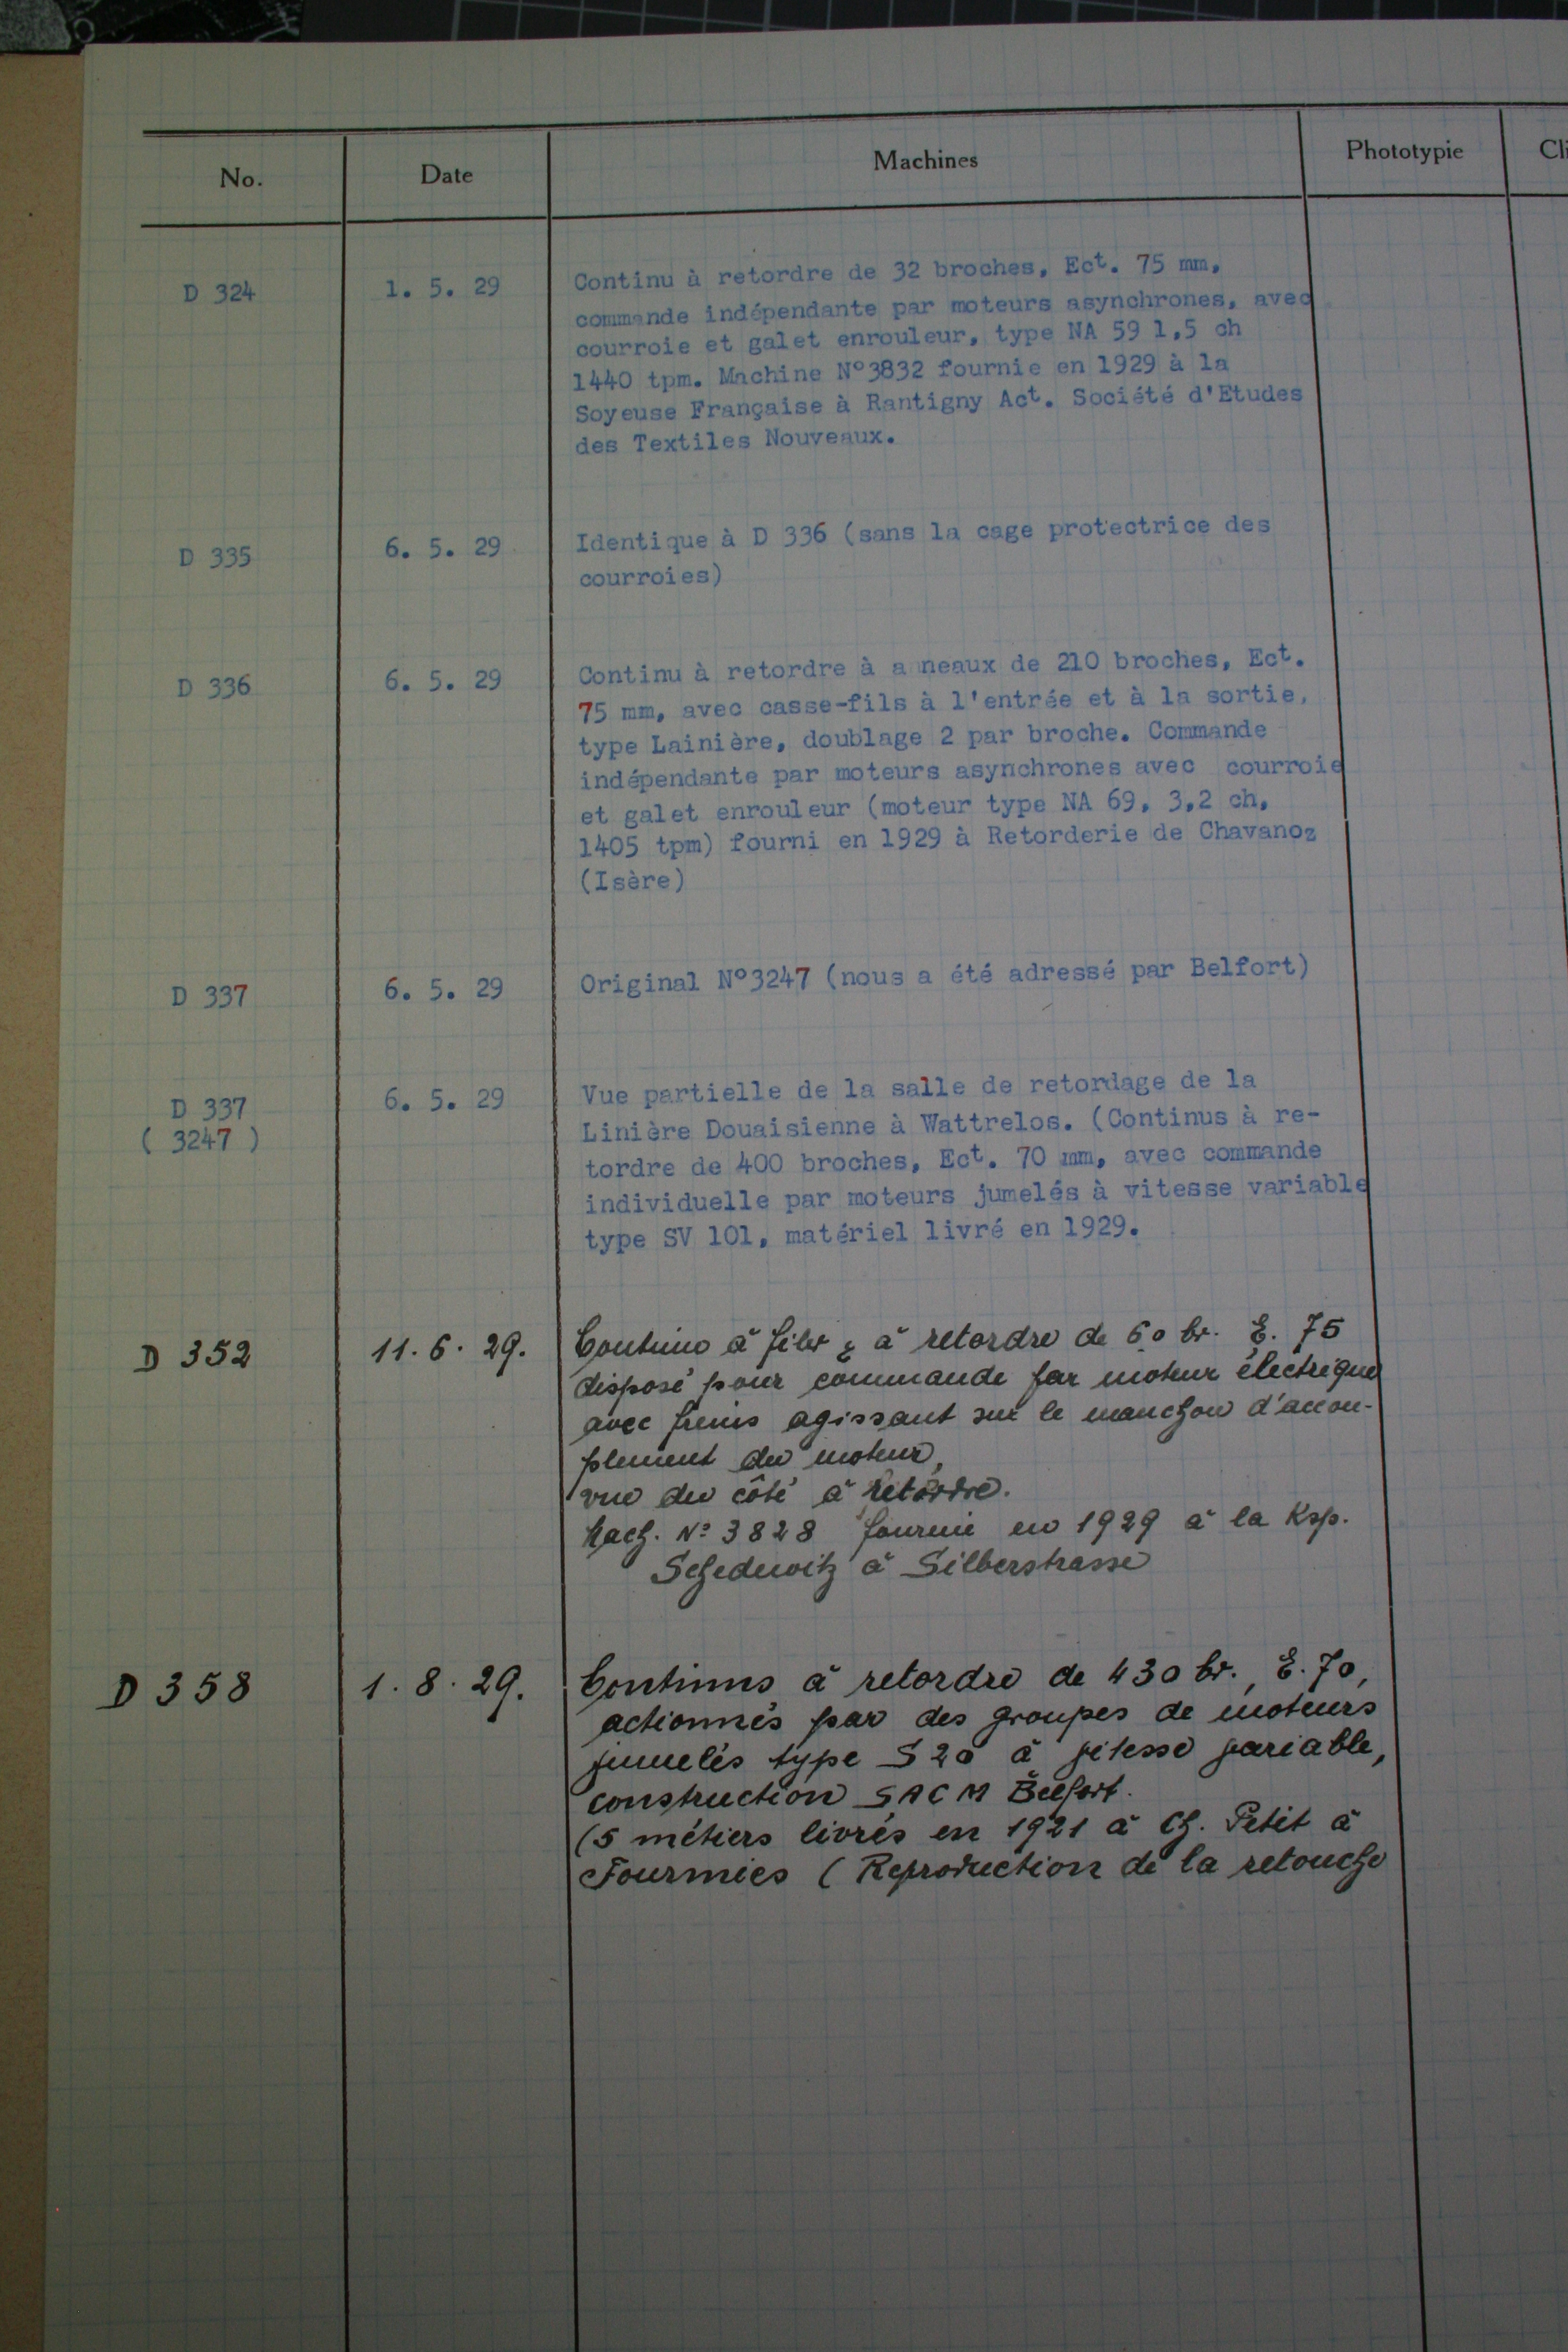 No. Date Machines Phototypie Cli
D 324 1. 5. 29 Continu à retordre de 32 broches, Ect. 75 mm,
commande indépendante par moteurs asynchrones, avec
courroie et galet enrouleur, type NA 59 1,5 ch
1440 tpm. Machine N°3832 fournie en 1929 à la
Soyeuse Française à Rantigny Act. Société d'Etudes
des Textiles Nouveaux.
D 335 6. 5. 29 Identique à D 336 (sans la cage protectrice des
courroies)
D 336 6. 5. 29 Continu à retordre à anneaux de 210 broches, Ect.
75 mm, avec casse-fils à l'entrée et à la sortie,
type Lainière, doublage 2 par broche. Commande
indépendante par moteurs asynchrones avec courroie
et galet enrouleur (moteur type NA 69, 3,2 ch,
1405 tpm) fourni en 1929 à Retorderie de Chavanoz
(Isère)
D 337 6. 5. 29 Original N°3247 (nous a été adressé par Belfort)
D 337 6. 5. 29 Vue partielle de la salle de retordage de la
( 3247 ) Linière Douaisienne à Wattrelos. (Continus à re-
tordre de 400 broches, Ect. 70 mm, avec commande
individuelle par moteurs jumelés à vitesse variable
type SV 101, matériel livré en 1929.
D 352 11. 6. 29. Continu à filer & à retordre de 60 br. E. 75
disposé pour commande par moteur électrique
avec freins agissant sur le manchon d'accou-
plement du moteur,
vue du côté à retordre.
Mach. N° 3828 fournie en 1929 à la Ksp.
Schedewitz à Silberstrasse
D 358 1. 8. 29. Continus à retordre de 430 br., E. 70,
actionnés par des groupes de moteurs
jumelés type S 20 à vitesse variable,
construction SACM Belfort.
(5 métiers livrés en 1921 à Ch. Petit à
Fourmies ( Reproduction de la retouche